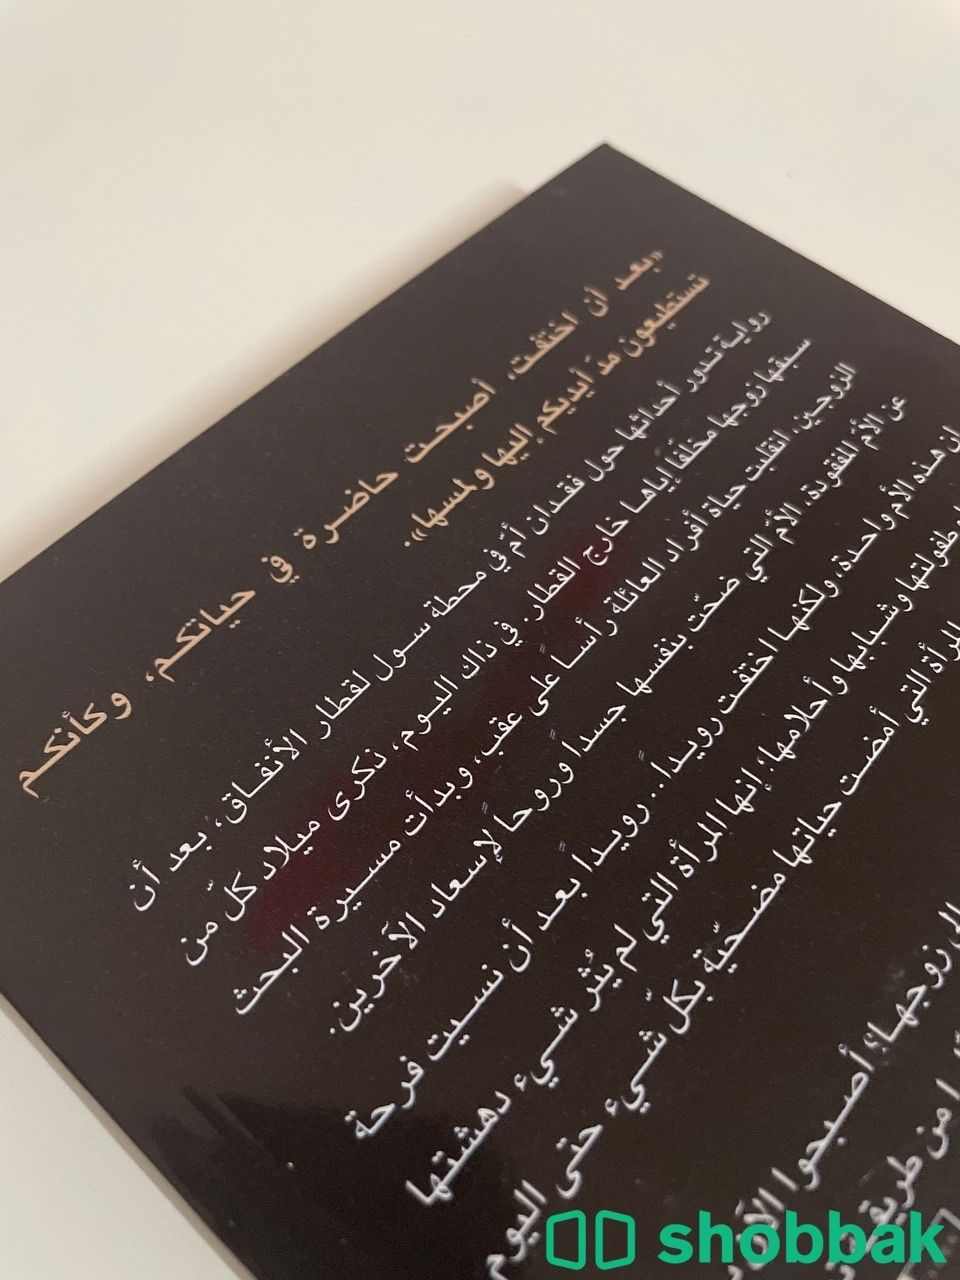 «بعد أن اختفت، أصبحت حاضرة في حياتكم، وكأنكم
تستطيعون مدّ أيديكم إليها ولمسها».
رواية تدور أحداثها حول فقدان أمّ في محطة سول لقطار الأنفاق، بعد أن
سبقها زوجها مخلّفاً إياها خارج القطار. في ذاك اليوم، ذكرى ميلاد كلّ من
الزوجين، انقلبت حياة أفراد العائلة رأساً على عقب، وبدأت مسيرة البحث
عن الأمّ المفقودة، الأمّ التي ضحّت بنفسها جسداً وروحاً لإسعاد الآخرين.
هذه الأم واحدة، ولكنها اختفت رويداً.. رويداً بعد أن نسيت فرحة
طفولتها وشبابها وأحلامها؛ إنها المرأة التي لم يُثر شيء دهشتها
المرأة التي أمضت حياتها مضحّية بكلّ شيء حتى اليوم
زوجها؛ أصبحوا الآن
من طريقة
shobbak